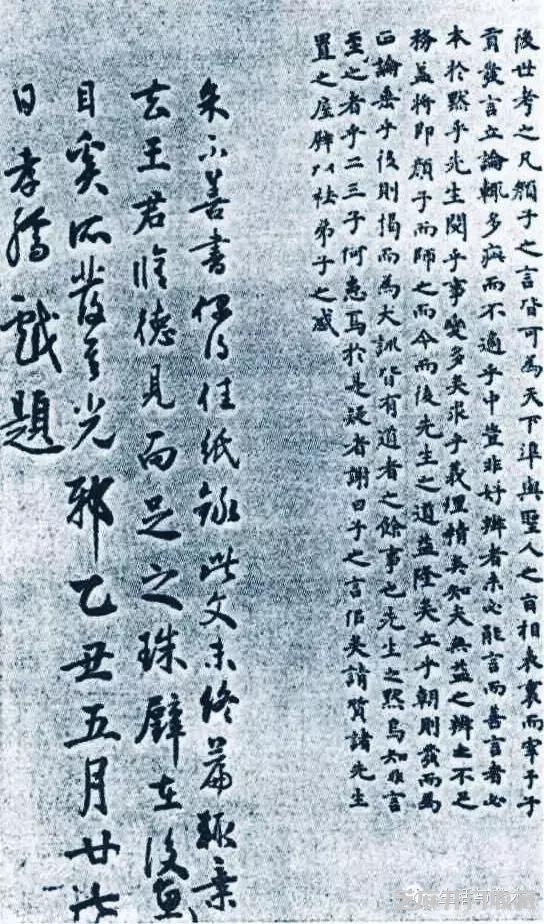 後世考之凡顏子之言皆可為天下準與聖人之言相表裏而宰予子
貢發言立論輒多疵而不適乎中豈非好辨者未必能言而善言者必
本於默乎先生閱乎事變多矣求乎義理精矣知夫無益之辨之不足
務蓋將即顏子而師之而今而後先生之道益隆矣立乎朝則發而為
正論垂乎後則揭而為大訓皆有道者之餘事也先生之默烏知非言
至之者乎二三子何惑焉於是疑者謝曰子之言信矣請質諸先生
置之座壁以祛弟子之惑
余不善書偶得佳紙錄此文未終篇輒棄
去王君脩德見而足之珠璧在後魚
目奚所發其光邪乙丑五月廿
日孝孺戲題